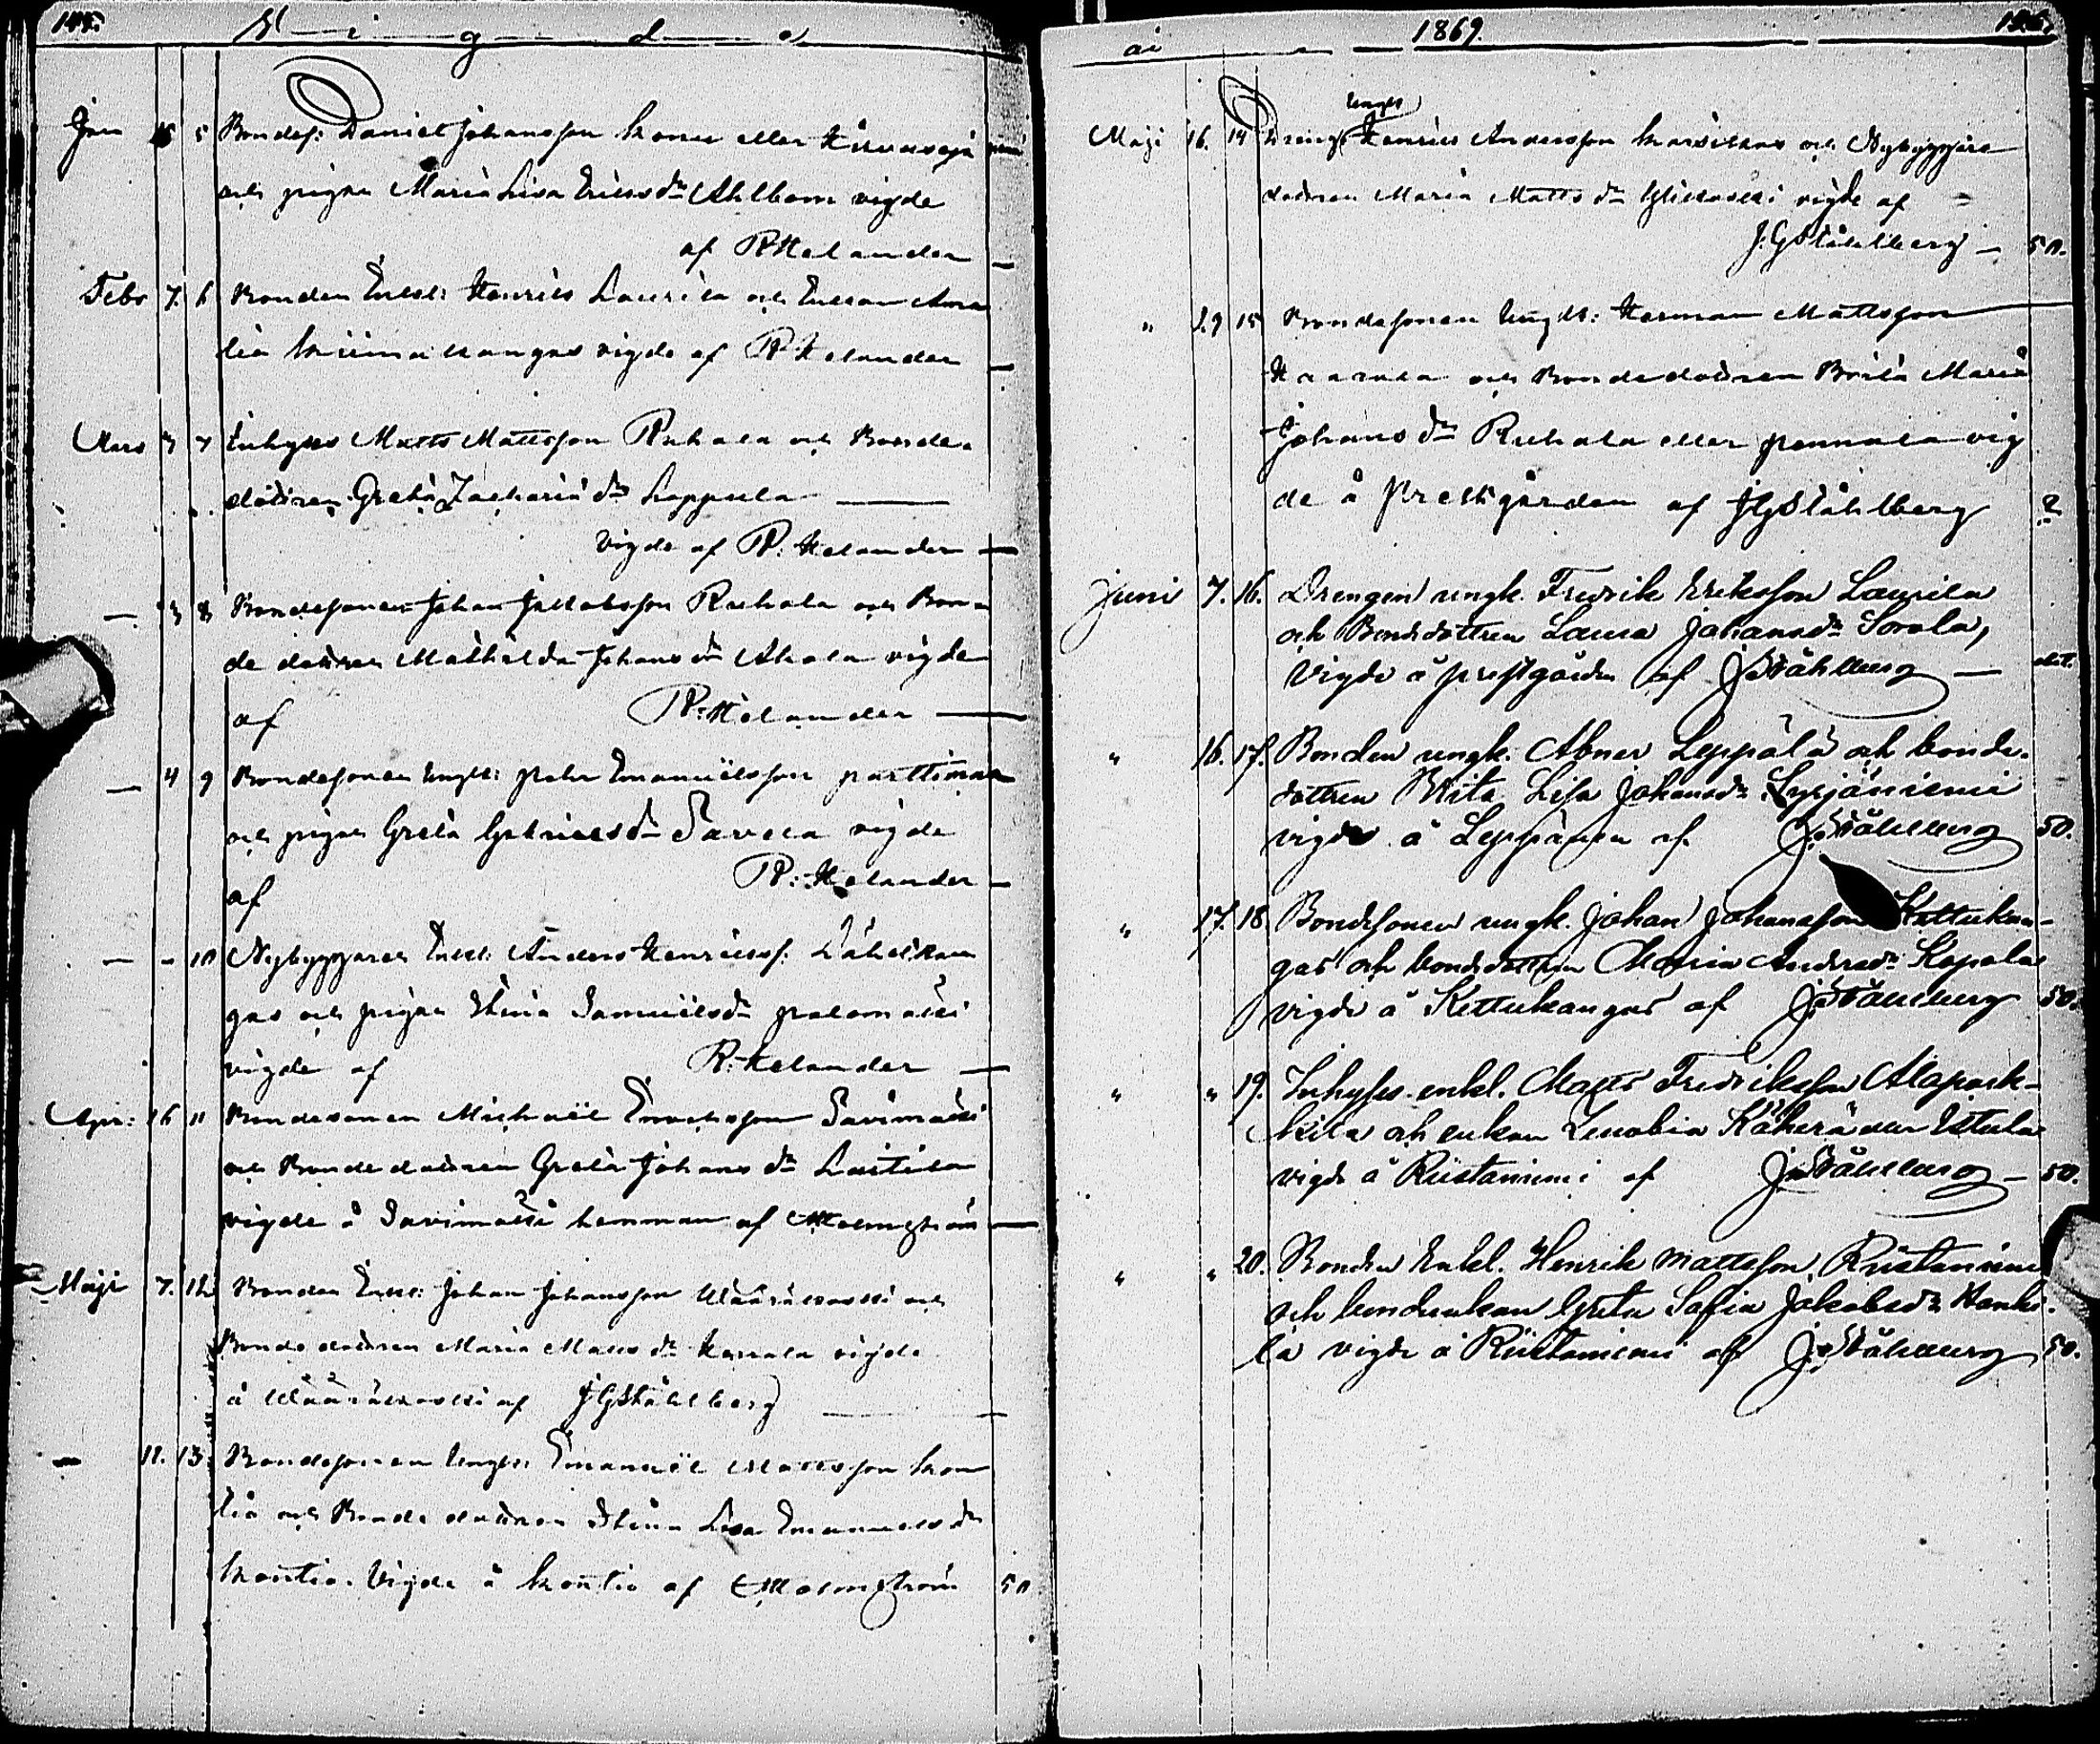 Vigde
Jan 5 Bondes: Daniel Johansson eller
och pigan Maria Lisa Ericsdr Ahlbom vigde
af R Helander
Febr 7. 6 Bonden Enkl: Henrik Laurila och Enkan Ama
lia Kiimakangas vigde af R Helander
Mars 7 Inhyses Matts Mattsson Ruhala och Bonde
dottren Greta Zacharia dr Lappula
Vigde af R: Helander
— 8 Bondesonen Johan Jakobsson Ruhala och Bon
de dottren Mathilda Johans dr Ahola vigde
af R: Helander
— 4 9 Bondesonen Ungk: Petr Emanuelsson Parttimaa
och pigan Greta Gabriels dr Savela vigde
af R: Helander
— - 10 Nybyggaren Enkl: Anders Henrikss: Lähdekan
gas och pigan Stina Samuelsdr Palomäki
vigde af R: Helander
Apr: 16 11 Bondesonen Michael Enochsson Savimäki
och Bonde dottren Greta Johans dr Lastila
vigde å Savimäki hemman af Malmström
Maji 7. 12 Bonden Enkl: Johan Johansson Wääräkoski och
Bonde dottren Maria Matts dr vigde
å Wääräkoski af JGStåhlberg
— 11. 13 Bondesonen Ungk: Emanuel Mattsson Kon
tio och Bonde dottren Stina Lisa Emanuels dr
Kontio. Vigde å Kontio af Malmström 50
1869.
Ungk
Maji 16. 14 Dreng Henrik Andersson och Nybyggare
dottren Maria Matts dr vigde af
J.G Ståhlberg — 50.
" 29 15 Bondesonen Ungk: Herman Mattsson
och Bonde dottren Brita Maria
Johans dr Ruhala eller Pennala vig
de å Prestgården af JGStåhlberg 2
Juni 7. 16. Drengen ungk. Fredrik Eriksson Laurila
och Bondedottren Lausa Johansdr Sorola,
Vigde å prestgården af JGStåhlberg —
" 16. 17. Bonden ungk. Abner Leppälä och bonde-
dottren Brita Lisa Johansdr Syrjäniemi
vigde å Leppänen af JGStåhlberg 50.
" 17. 18 Bondesonen ungk. Johan Johansson Kettukan-
gas och bondedottren Maria Andersdr Kopola
vigde å Kettukangas af JGStåhlberg 50.
" " 19. Inhyses enkl. Matts Fredriksson Alapark-
kila och enkan Zenobia Käherä Estola
vigde å Riistaniemi af JGStåhlberg — 50.
" " 20. Bonden Enkl. Henrik Mattsson Riistaniemi
och bondenkan Greta Sofia Jakobsdr Hanki
la vigde å Riistaniemi af JGStåhlberg 50.